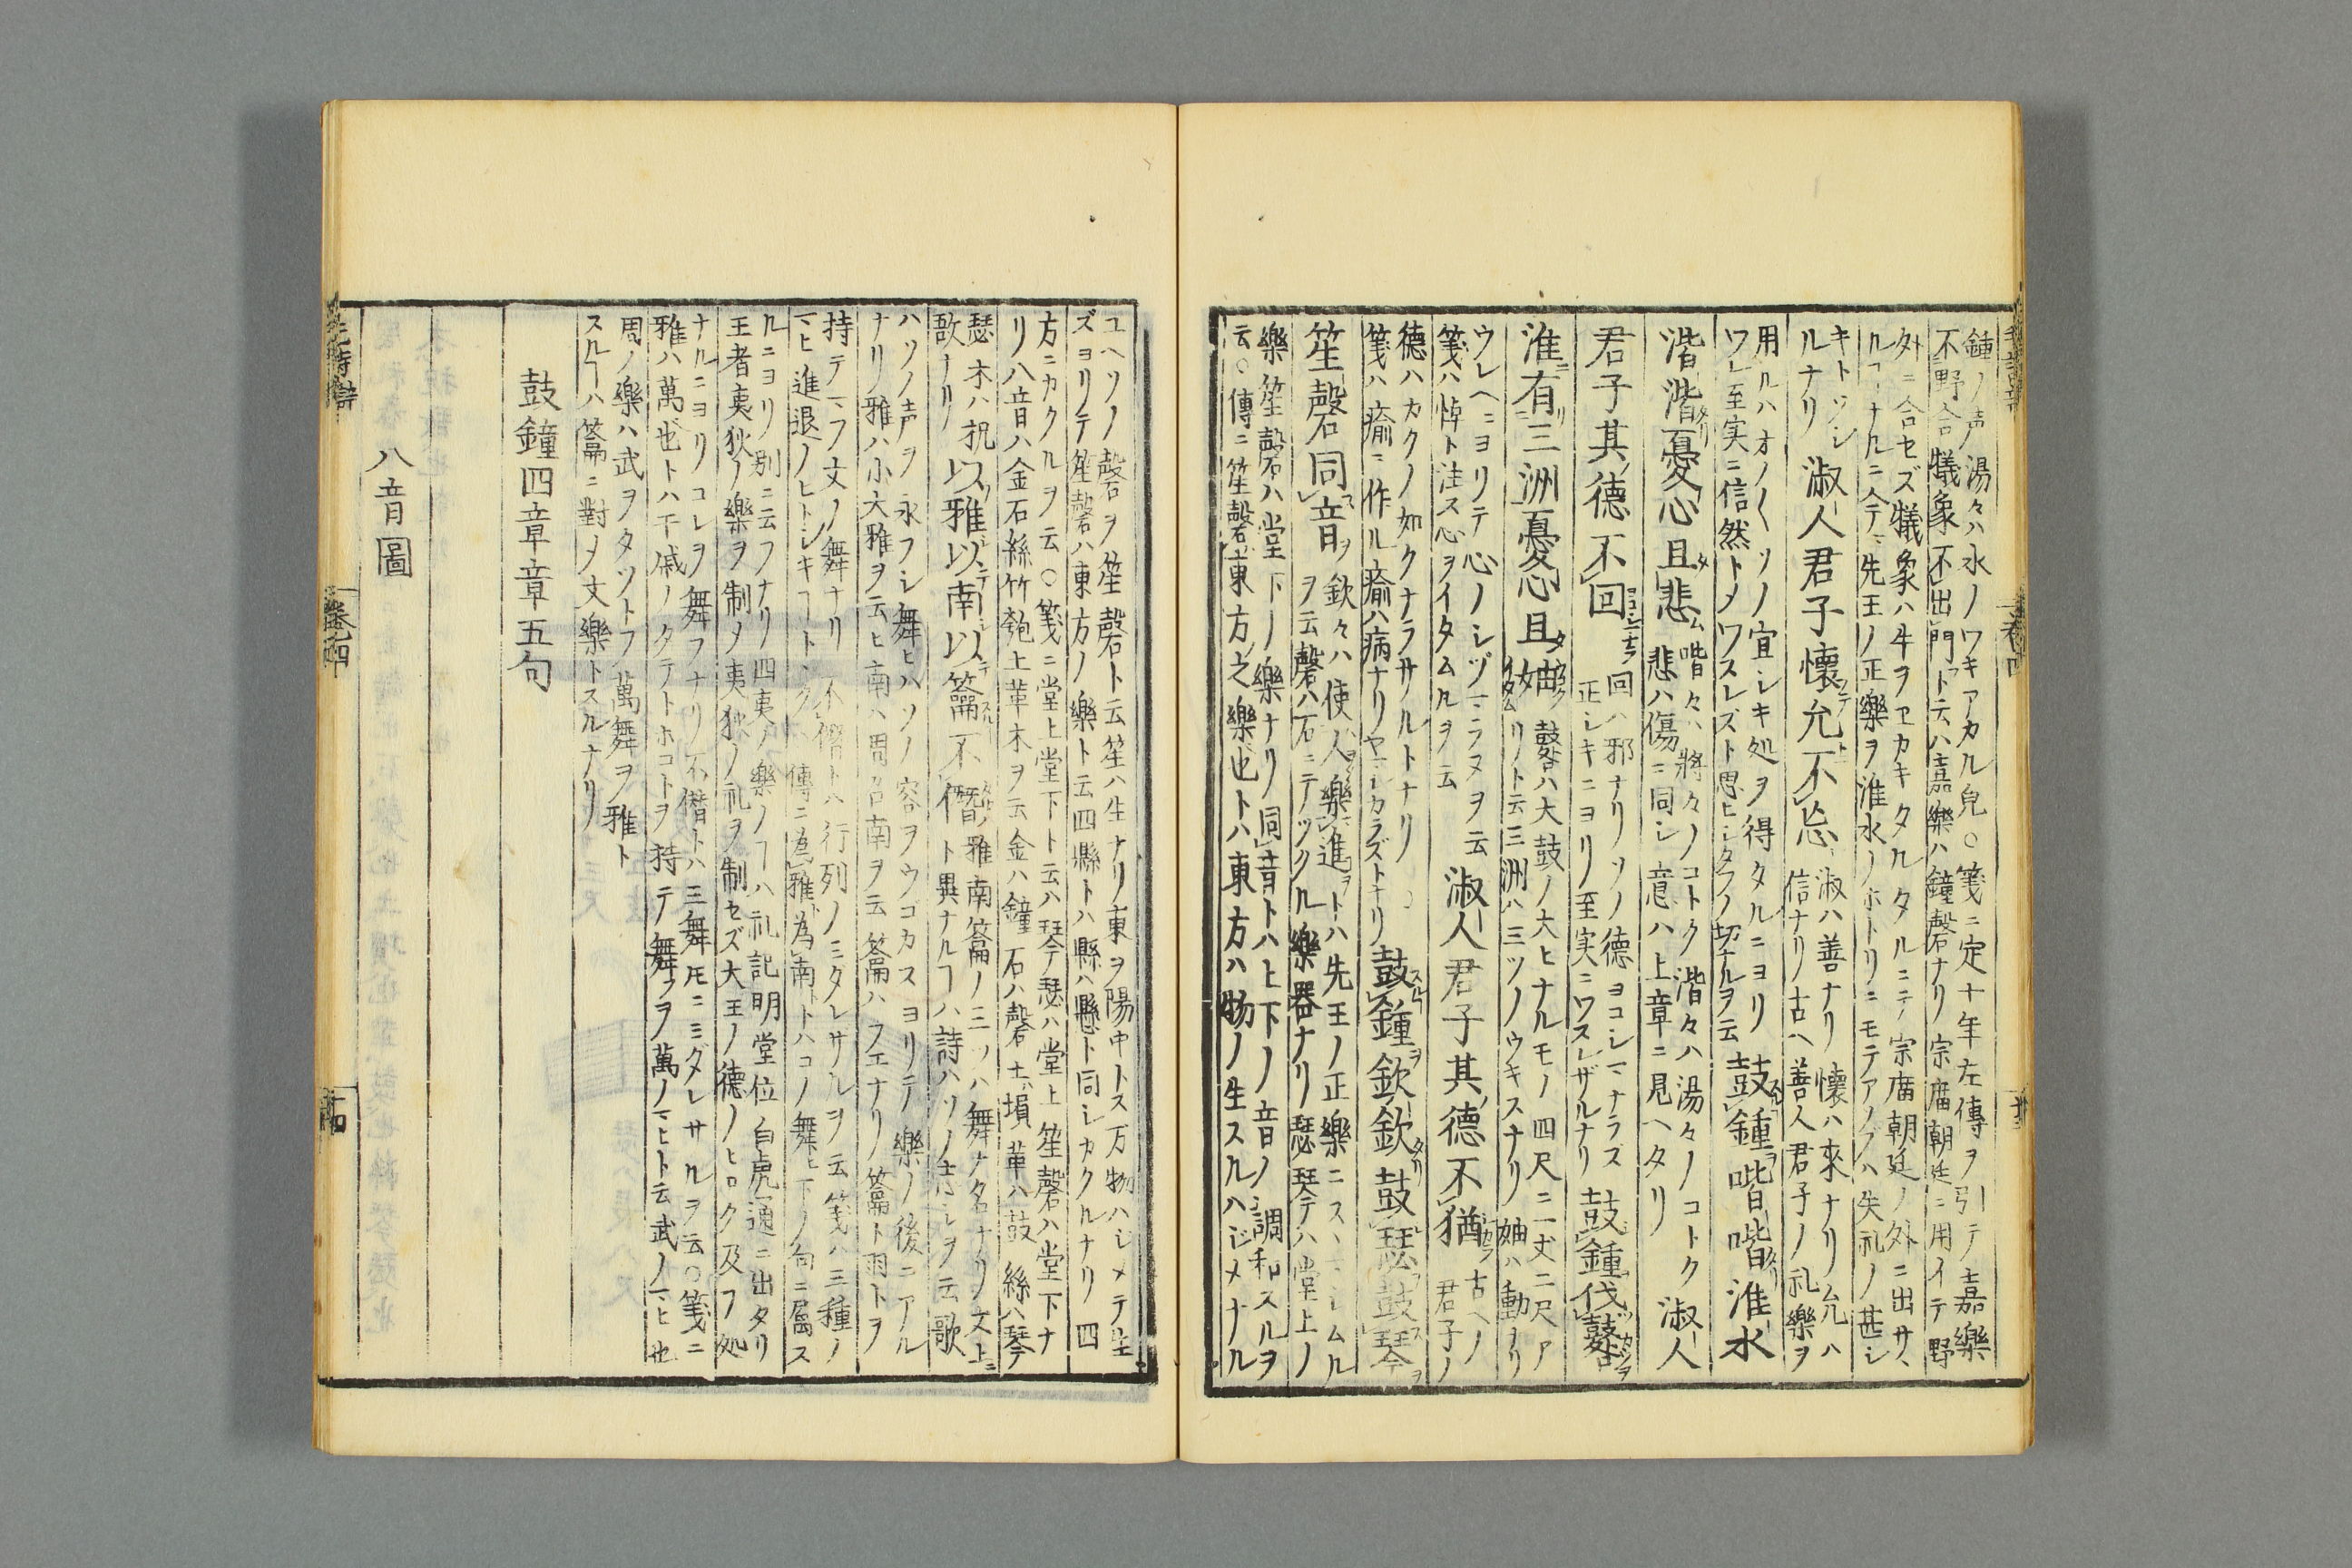 鍾ノ声湯々ハ水ノワキアカル皃○箋ニ定十年左傳ヲ引テ嘉樂
不野合犠象不出門ト云ハ嘉樂ハ鐘磬ナリ宗庿朝廷ニ用イテ野
外ニ合セズ犠象ハ牛ヲヱカキタルタルニテ宗庿朝廷ノ外ニ出サヽ
ルヿナルニ今テ先王ノ正樂ヲ淮水ノホトリニモテアソブハ失礼ノ甚シ
キトツシ
ルナリ
淑人君子懷允不忘
淑ハ善ナリ懷ハ來ナリ允ハ
信ナリ古ヘ善人君子ノ礼樂ヲ
用ルハオノ〱ソノ宜シキ処ヲ得タルニヨリ
ワレ至実ニ信然トメワスレズト思ヒシタフノ切ナルヲ云
鼓鍾喈喈淮水
湝湝憂心且悲
喈々ハ將々ノコトク湝々ハ湯々ノコトク
悲ハ傷ニ同シ意ハ上章ニ見ヘタリ
淑人
君子其德不回
回ハ邪ナリソノ德ヨコシマナラス
正シキニヨリ至実ニワスレザルナリ
鼓鍾伐鼛
淮有三洲憂心且妯
鼛ハ大鼓ノ大ヒナルモノ四尺ニ一丈二尺ア
リト云三洲ハ三ツノウキスナリ妯ハ動ヲリ
ウレヘニヨリテ心ノシヅマラヌヲ云
箋ハ悼ト注ス心ヲイタムルヲ云
淑人君子其德不猶
古ヘノ
君子ノ
德ハカクノ如クナラサルトナリ
箋ハ瘉ニ作ル瘉ハ病ナリヤマシカラズトナリ
鼓鍾欽欽鼓瑟鼓琴
笙磬同音
欽々ハ使人樂進トハ先王ノ正樂ニスヽマシムル
ヲ云磬ハ石ニテツクル樂器ナリ瑟琴テハ堂上ノ
樂笙磬ハ堂下ノ樂ナリ同音トハ上下ノ音ノ調和スルヲ
云○傳ニ笙磬東方之樂也トハ東方ハ物ノ生スルハジメナル
ユヘソノ磬ヲ笙磬ト云笙ハ生ナリ東ヲ陽中トス万物ハジメテ生
ズヨリテ笙磬ハ東方ノ樂ト云四縣トハ縣ハ懸ト同シカクルナリ四
方ニカクルヲ云○箋ニ堂上堂下ト云ハ琴瑟ハ堂上笙磬ハ堂下ナ
リ八音ハ金石絲竹匏土革木ヲ云金ハ鐘石ハ磬土ハ塤革ハ鼓絲ハ琴
瑟木ハ柷
敔ナリ
以雅以南以籥不僭
雅南籥ノ三ツハ舞ノ名ナリ文上ニ
ト異ナルヿハ詩ハソノ志シヲ云歌
ハソノ声ヲ永フシ舞ヒハソノ容ヲウゴカスヨリテ樂ノ後ニアル
ナリ雅ハ小大雅ヲ云ヒ南ハ周召南ヲ云籥ハフエナリ籥ト羽トヲ
持テマフ文ノ舞ナリ不僭トハ行列ノミタレサルヲ云箋ハ三種ノ
マヒ進退ノヒトシキヿトトク傳ニ為雅為南トハコノ舞ヒ下ノ句ニ属ス
ルニヨリ別ニ云フナリ四夷ノ樂ノヿハ礼記明堂位白虎通ニ出タリ
王者夷狄ノ樂ヲ制メ夷狄ノ礼ヲ制セズ大王ノ德ノヒロク及フ処
ナルニヨリコレヲ舞フナリ不僭トハ三舞トモニミダレサルヲ云○箋ニ
雅ハ萬也トハ干戚ノタテトホコトヲ持テ舞フヲ萬ノマヒト云武ノマヒ也
周ノ樂ハ武ヲタツトフ萬舞ヲ雅ト
スルヿハ籥ニ對メ文樂トスルナリ
鼓鐘四章章五句
八音圖
毛詩辭
卷四